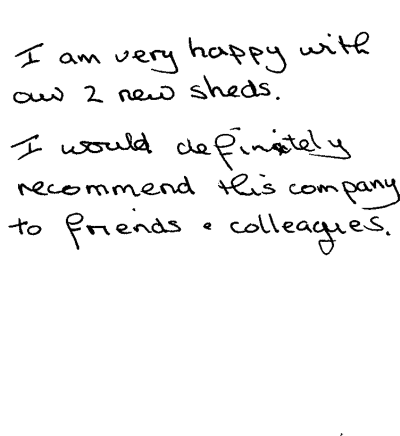 I am very happy with
our 2 new sheds.
I would definitely
recommend this company
to friends & colleagues.